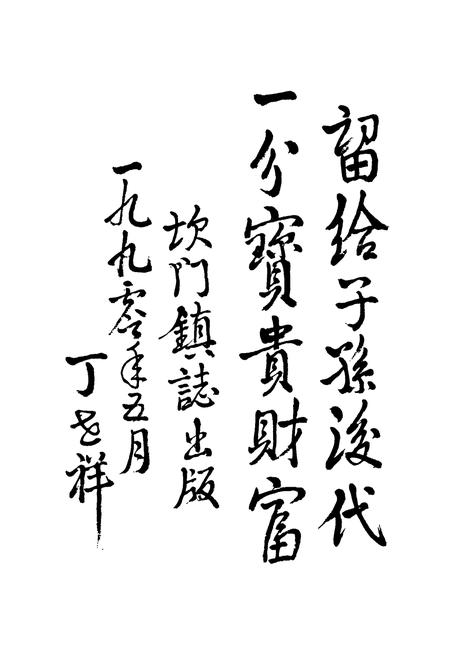 留给子孫後代
一分寳貴財富
坎門鎮誌出版
一九九零年五月
丁世祥